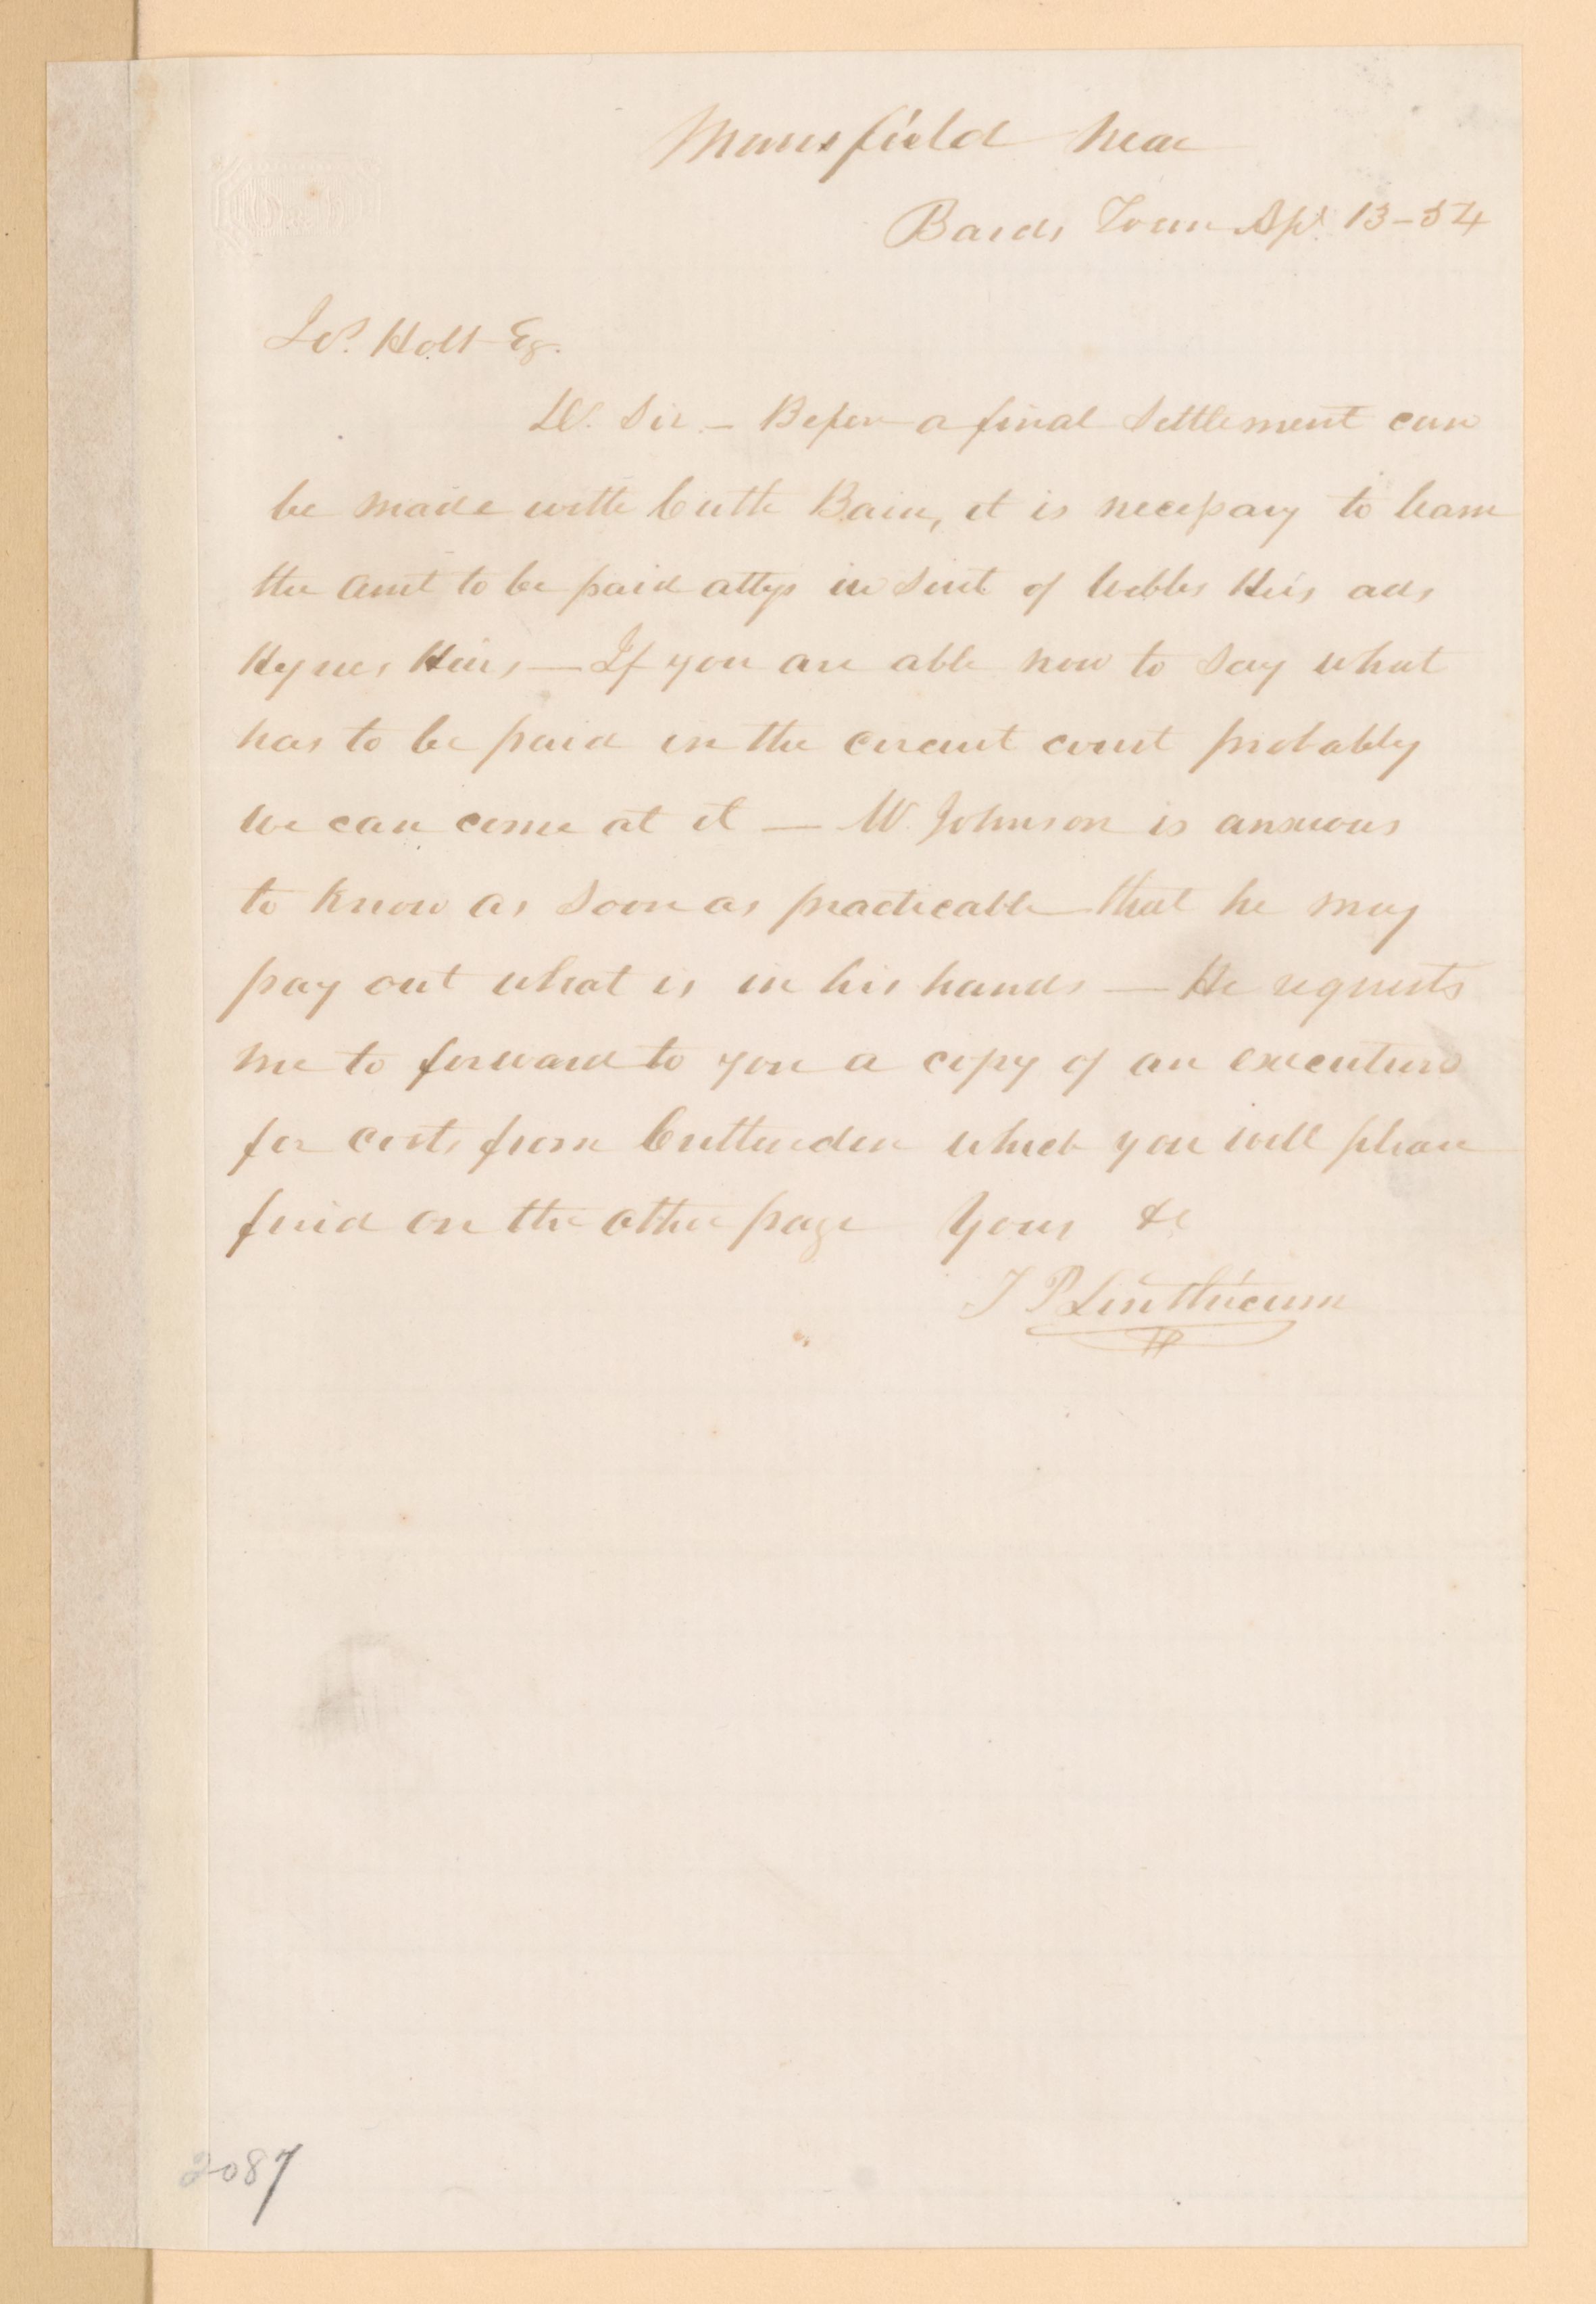 Mansfield near
Bards Town Apl. 13-54
Jos. Holt Esq.
Dr. Sir. — Before a final settlement can
be made with Cuth Bain, it is necessary to learn
the amt to be paid attys in suit of Webbs Heirs ads
Hynes Heirs — If you are able now to say what
has to be paid in the circuit court probably
we can come at it — W. Johnson is anxious
to know as soon as practicable that he may
pay out what is in his hands — He requests
me to forward to you a copy of an execution
for costs from Crittenden which you will please
find on the other page Yours &c
J P Linthicum
2087